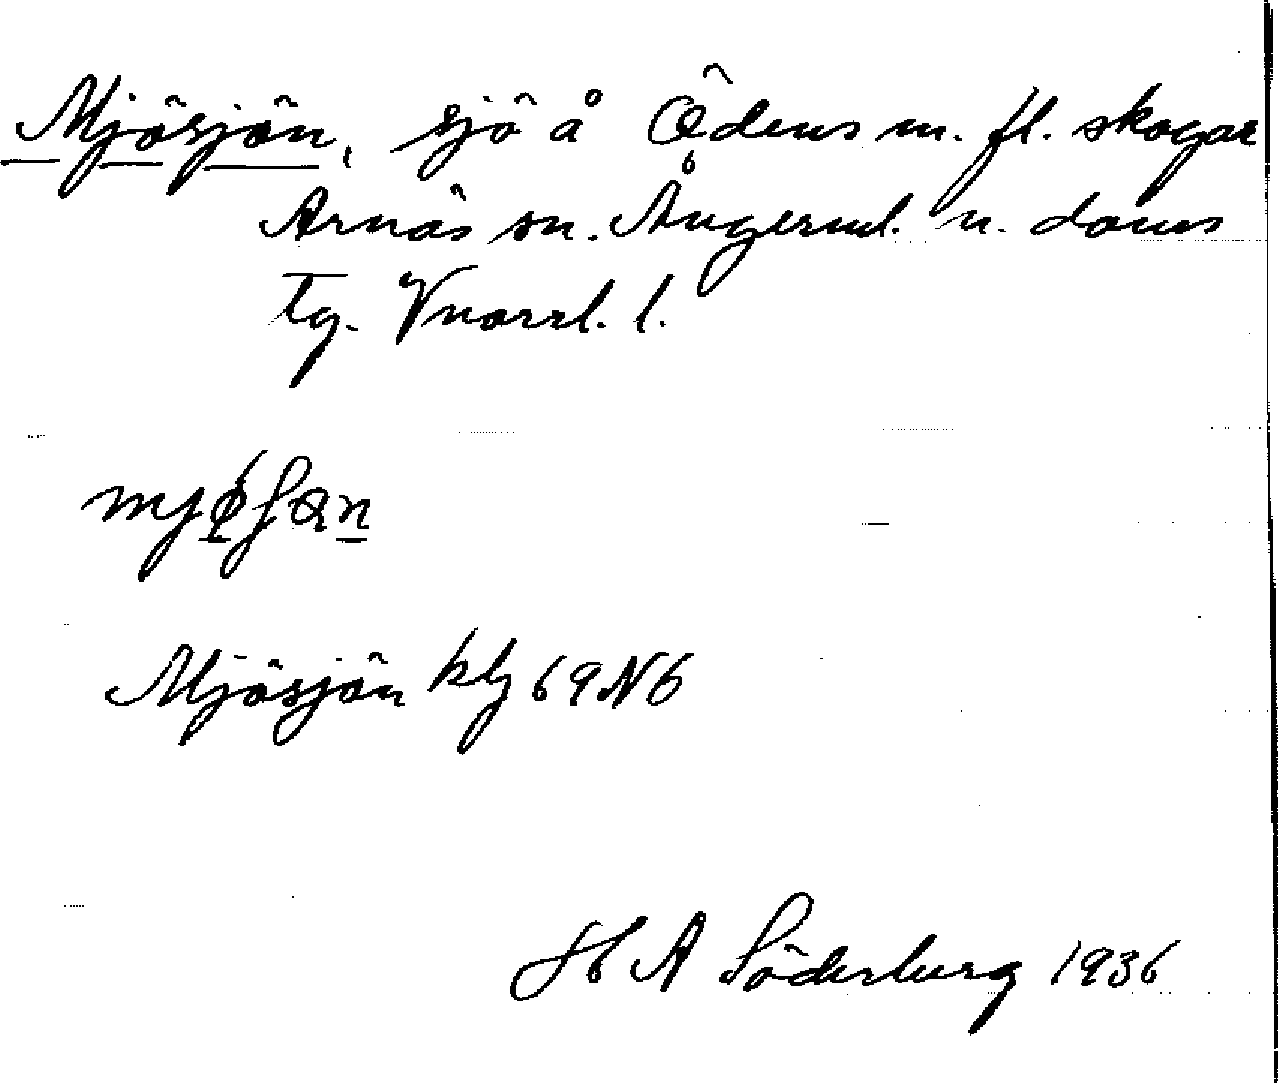 Mjösjön, sjö å Ödens m. fl. skogar
Arnäs sn. Ångerml. n. doms
tg. Vnorrl. l.
Mjösjön kbl 69N6
H A Söderberg 1936